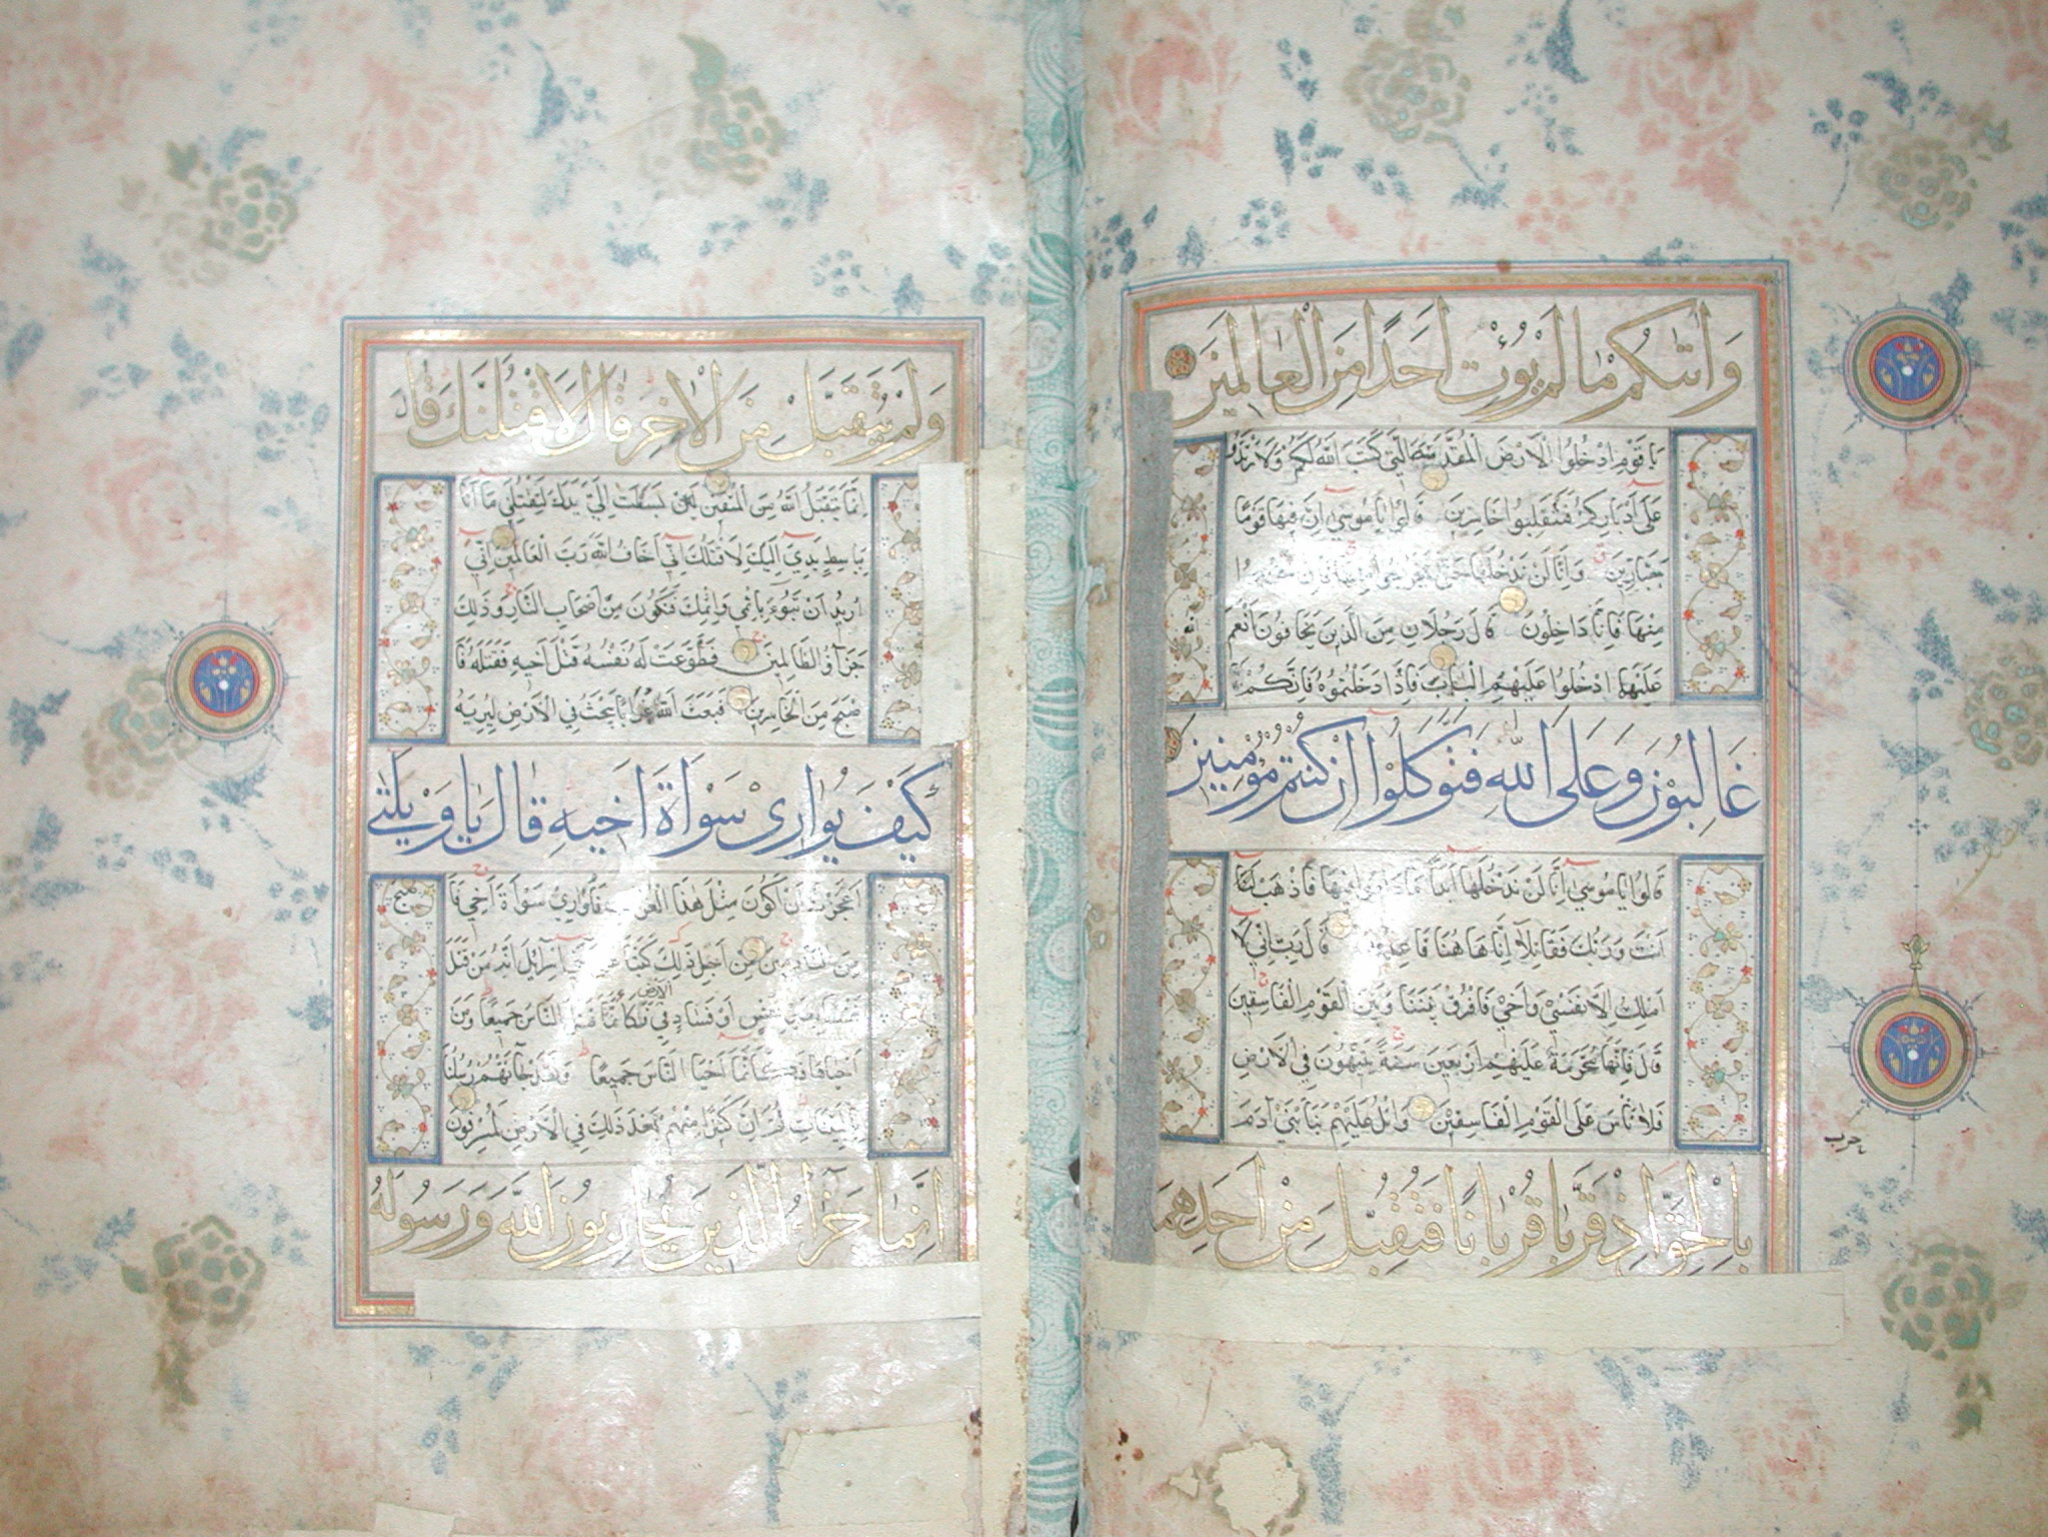 وَاٰتٰيكُمْ مَا لَمْ يُؤْتِ اَحَدًا مِنَ الْعَالَمِينَ
يَا قَوْمِ ادْخُلُوا الْاَرْضَ الْمُقَدَّسَةَ الَّتِي كَتَبَ اللّٰهُ لَكُمْ وَلَا تَرْتَدُّوا
عَلٰى اَدْبَارِكُمْ فَتَنْقَلِبُوا خَاسِرِينَ قَالُوا يَا مُوسٰى اِنَّ فِيهَا قَوْمًا
جَبَّارِينَ وَاِنَّا لَنْ نَدْخُلَهَا حَتّٰى يَخْرُجُوا مِنْهَا فَاِنْ يَخْرُجُوا
مِنْهَا فَاِنَّا دَاخِلُونَ قَالَ رَجُلَانِ مِنَ الَّذِينَ يَخَافُونَ اَنْعَمَ اللّٰه
عَلَيْهِمَا ادْخُلُوا عَلَيْهِمُ الْبَابَ فَاِذَا دَخَلْتُمُوهُ فَاِنَّكُمْ
غَالِبُونَ وَعَلَى اللّٰهِ فَتَوَكَّلُوا اِنْ كُنْتُمْ مُؤْمِنِينَ
قَالُوا يَا مُوسٰى اِنَّا لَنْ نَدْخُلَهَا اَبَدًا مَا دَامُوا فِيهَا فَاذْهَبْ
اَنْتَ وَرَبُّكَ فَقَاتِلَا اِنَّا هَاهُنَا قَاعِدُونَ قَالَ رَبِّ اِنِّي لَا
اَمْلِكُ اِلَّا نَفْسِي وَاَخِي فَافْرُقْ بَيْنَنَا وَبَيْنَ الْقَوْمِ الْفَاسِقِينَ
قَالَ فَاِنَّهَا مُحَرَّمَةٌ عَلَيْهِمْ اَرْبَعِينَ سَنَةً يَتِيهُونَ فِي الْاَرْضِ
فَلَا تَأْسَ عَلَى الْقَوْمِ الْفَاسِقِينَ وَاتْلُ عَلَيْهِمْ نَبَاَ ابْنَيْ اٰدَمَ
بِالْحَقِّ اِذْ قَرَّبَا قُرْبَانًا فَتُقُبِّلَ مِنْ اَحَدِهِمَا
حزب
وَلَمْ يُتَقَبَّلْ مِنَ الْاٰخَرِ قَالَ لَاَقْتُلَنَّكَ قَالَ
اِنَّمَا يَتَقَبَّلُ اللّٰهُ مِنَ الْمُتَّقِينَ لَئِنْ بَسَطْتَ اِلَيَّ يَدَكَ لِتَقْتُلَنِي مَا اَنَا
بِبَاسِطٍ يَدِيَ اِلَيْكَ لِاَقْتُلَكَ اِنِّي اَخَافُ اللّٰهَ رَبَّ الْعَالَمِينَ اِنِّي
اُرِيدُ اَنْ تَبُوءَ بِاِثْمِي وَاِثْمِكَ فَتَكُونَ مِنْ اَصْحَابِ النَّارِ وَذٰلِكَ
جَزَاؤُ الظَّالِمِينَ فَطَوَّعَتْ لَهُ نَفْسُهُ قَتْلَ اَخِيهِ فَقَتَلَهُ فَاَ
صْبَحَ مِنَ الْخَاسِرِينَ فَبَعَثَ اللّٰهُ غُرَابًا يَبْحَثُ فِي الْاَرْضِ لِيُرِيَهُ
كَيْفَ يُوَارِي سَوْاَةَ اَخِيهِ قَالَ يَا وَيْلَتٰى
اَعَجَزْتُ اَنْ اَكُونَ مِثْلَ هٰذَا الْغُرَابِ فَاُوَارِيَ سَوْاَةَ اَخِي فَاَصْبَحَ
مِنَ النَّادِمِينَ مِنْ اَجْلِ ذٰلِكَ كَتَبْنَا عَلٰى بَنِي اِسْرَائِيلَ اَنَّهُ مَنْ قَتَلَ
نَفْسًا بِغَيْرِ نَفْسٍ اَوْ فَسَادٍ فِي الْاَرْضِ فَكَاَنَّمَا قَتَلَ النَّاسَ جَمِيعًا وَمَنْ
اَحْيَاهَا فَكَاَنَّمَا اَحْيَا النَّاسَ جَمِيعًا وَلَقَدْ جَاءَتْهُمْ رُسُلُنَا
بِالْبَيِّنَاتِ ثُمَّ اِنَّ كَثِيرًا مِنْهُمْ بَعْدَ ذٰلِكَ فِي الْاَرْضِ لَمُسْرِفُونَ
اِنَّمَا جَزَاءُ الَّذِينَ يُحَارِبُونَ اللّٰهَ وَرَسُولَهُ